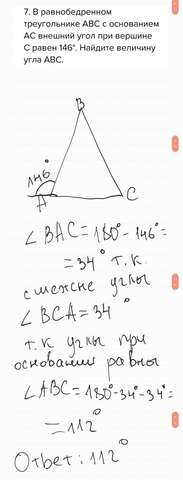 7. В равнобедренном
треугольнике ABC с основанием
AC внешний угол при вершине
C равен 146°. Найдите величину
угла ABC.
B
146°
A
C
∠ BAC = 180° - 146° =
= 34° т.к.
смежные углы
∠ BCA = 34°
т.к углы при
основании равны
∠ABC = 180° - 34° - 34° =
= 112°
Ответ: 112°